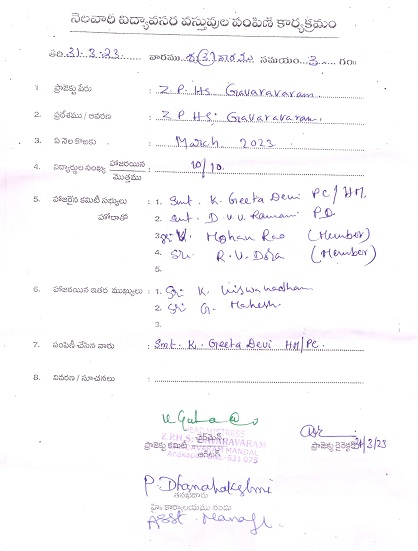 నెలవారీ విద్యావసర వస్తువుల పంపిణి కార్యక్రమం
తేది. 31-3-23. వారము శుక్రవారము సమయం 3 గం॥
1. ప్రాజెక్టు పేరు : Z.P. Hs Gavaravaram
2. ప్రదేశము / ఆవరణ : Z P HS: Gavaravaram.
3. ఏ నెల కొఱకు : March 2023
4. విద్యార్థుల సంఖ్య హాజరయిన మొత్తము : 10/10
5. హాజరైన కమిటీ సభ్యులు హోదాతో : 1. Smt. K. Geeta Devi PC/HM.
2. Smt. D. V.V. Ramani P.D
3. Sri V. Mohan Rao (Member)
4. Sri. R.V. Dora (Member)
5.
6. హాజరయిన ఇతర ముఖ్యులు : 1. Sri K. Viswanadham
2. Sri G. Mahesh
3.
7. పంపిణీ చేసిన వారు : Smt. K. Geeta Devi HM/PC.
8. వివరణ / సూచనలు :
HEAD MISTRESS
చైర్మెన్
Z.P.H.S. GAVARAVARAM
ప్రాజెక్టు కమిటీ
ప్రాజెక్టు డైరెక్టర్ 31/3/23
MANDAL
531 075
P. Dhanalakshmi
Asst. Manager